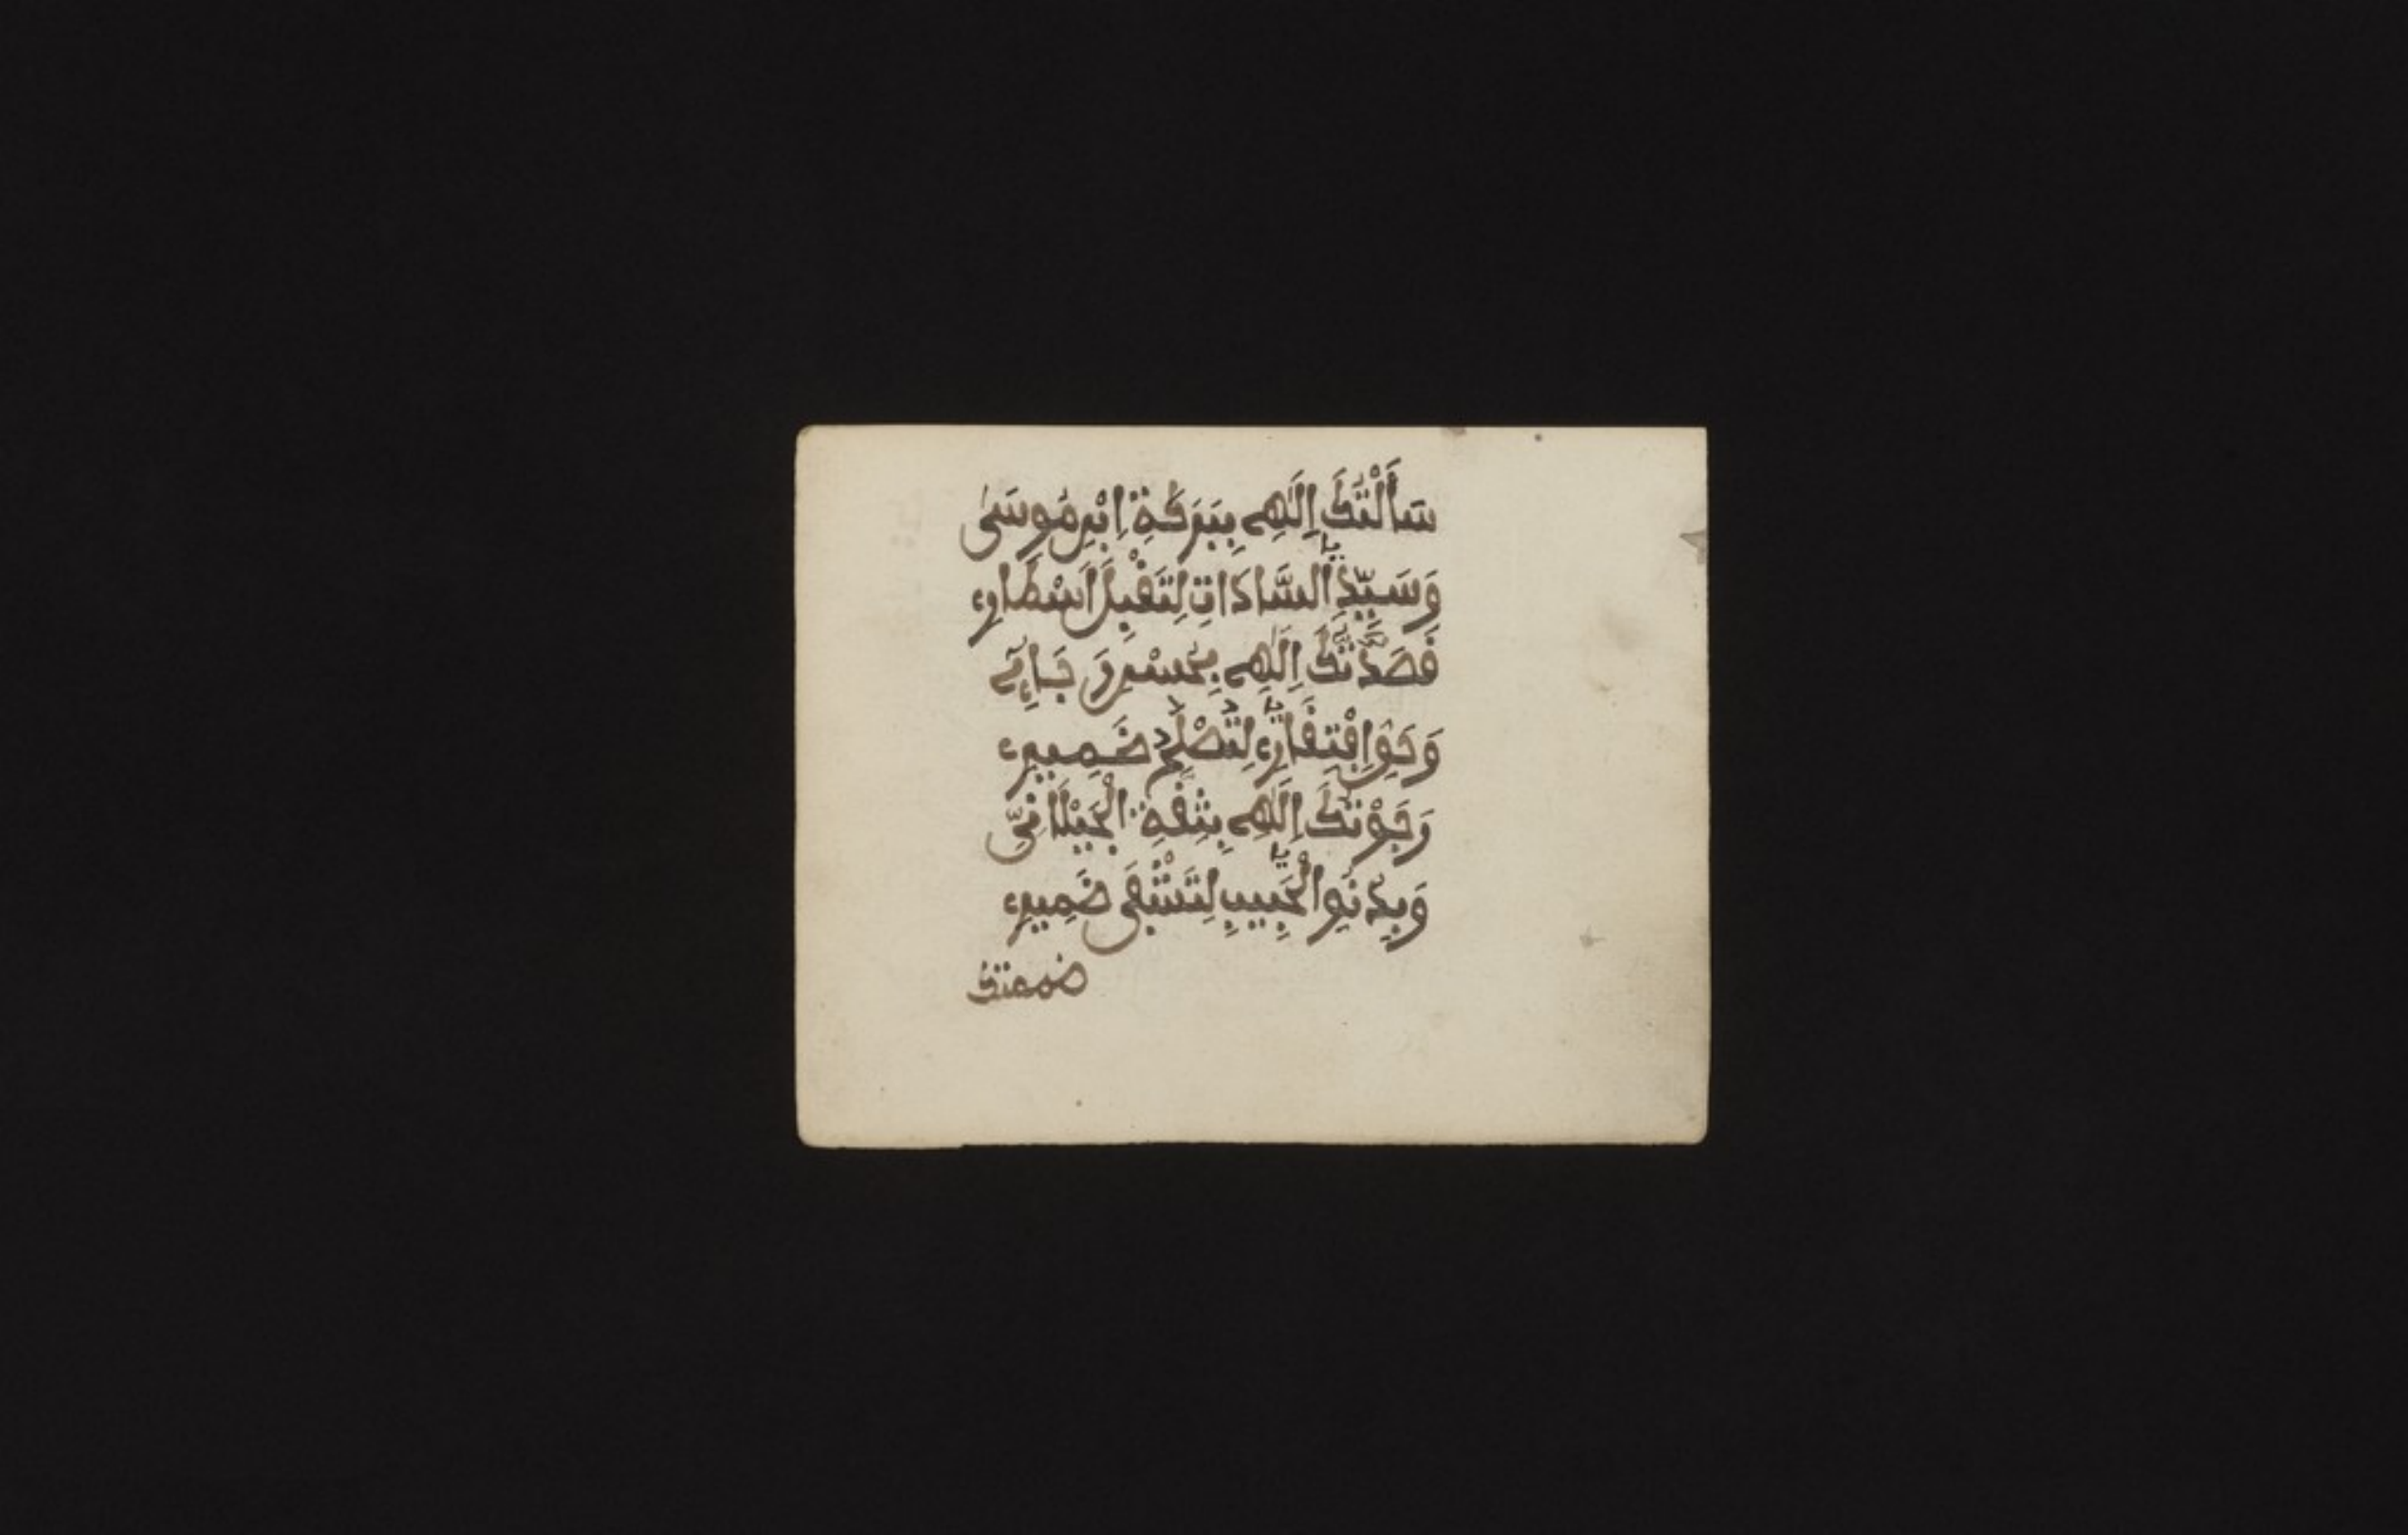 سَأَلْتُكَ إِلَٰهِي بِبَرَكَةِ ابْنِ مُوسَىٰ
وَسَيِّدِ السَّادَاتِ لِتَقْبِلَ اَسْطَارِي
قَصَدْتُّكَ إِلَٰهِي
وَحَقِّ افْتِقَارِي لِتُصْلِحَ ضَمِيرِي
رَجَوْتُكَ إِلَٰهِي بِثِقَةِ الْجَيْلَانِيِّ
الْحَبِيبِ لِتَشْفَى ضَمِيرِي
ضمعتك